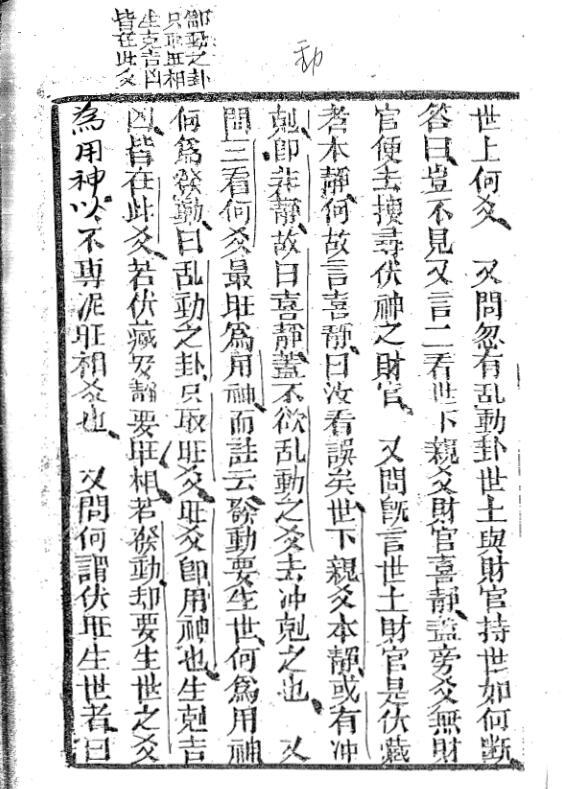 卽動之卦
只取旺相
生克吉凶
皆在此爻
世上何爻　又問忽有乱動卦世上與財官持世如何断
答曰豈不見又言二看世下親爻財官喜靜盖旁爻無財
官便去搜尋伏神之財官　又問旣言世上財官是伏藏
者本靜何故言喜靜曰汝看誤矣世下親爻本靜或有冲
剋卽非靜故曰喜靜盖不欲乱動之爻去冲剋之也　又
問三看何爻最旺爲用神而註云發動要生世何爲用神
何爲發動曰乱動之卦只取旺爻旺爻卽用神也生剋吉
凶皆在此爻若伏藏安靜要旺相若發動却要生世之爻
為用神以不專泥旺相爻也　又問何謂伏旺生世者曰